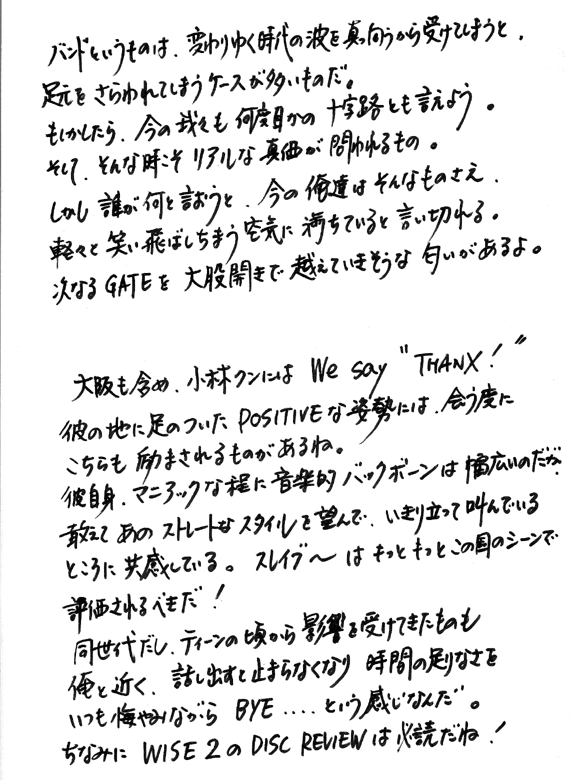 バンドというものは、変わりゆく時代の波を真っ向うから受けてしまうと、
足元をさらわれてしまうケースが多いものだ。
もしかしたら、今の我々も何度目かの十字路とも言えよう。
そして、そんな時こそリアルな真価が問われるもの。
しかし誰が何と言おうと、今の俺達はそんなものさえ、
軽々と笑い飛ばしちまう空気に満ちていると言い切れる。
次なるGATEを大股開きで越えていきそうな匂いがあるよ。
大阪も含め、小林クンには We say "THANX!"
彼の地に足のついたPOSITIVEな姿勢には、会う度に
こちらも励まされるものがあるね。
彼自身、マニアックな程に音楽的バックボーンは幅広いのだが、
敢えてあのストレートなスタイルを望んで、いきり立って叫んでいる
ところに共感している。スレイブ〜はもっともっとこの国のシーンで
評価されるべきだ!
同世代だし、ティーンの頃から影響を受けてきたものも
俺と近く、話し出すと止まらなくなり時間の足りなさを
いつも悔やみながら BYE....という感じなんだ。
ちなみに WISE 2 の DISC REVIEW は必読だね!